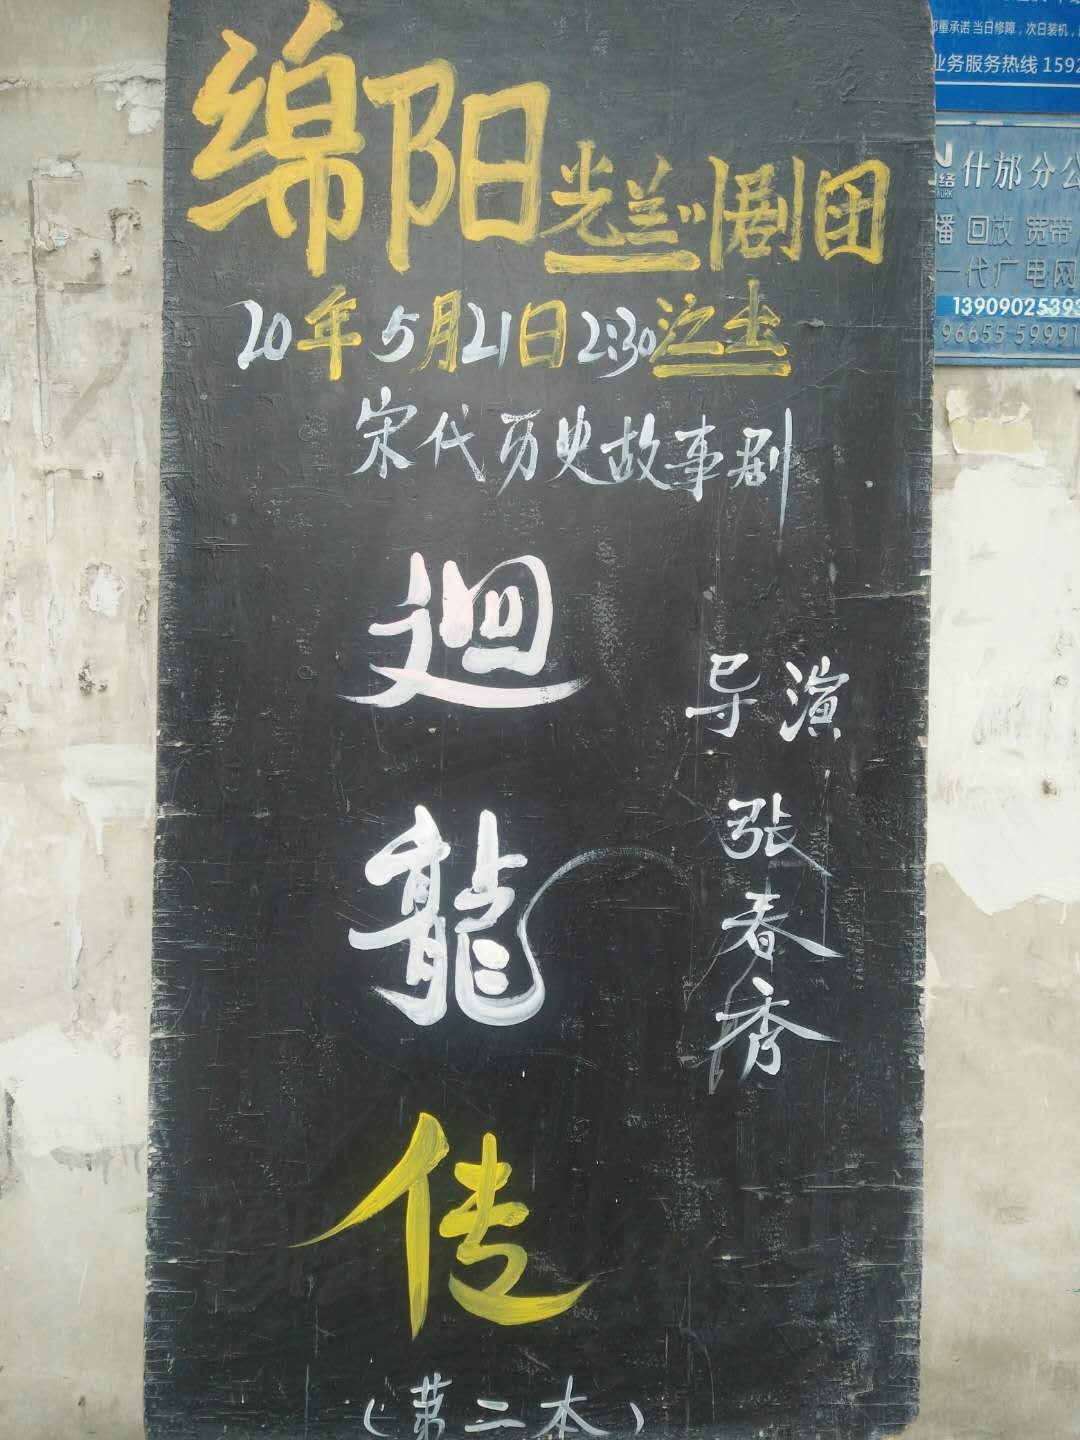 绵阳光兰川剧团
20年5月21日2:30演出
宋代历史故事剧
迴龍传
（第二本）
导演
张春秀
重承诺 当日修障，次日装机，
业务服务热线 1592
什邡分公
络
WORK
播 回放 宽带
一代广电网
13909025393
96655 59991